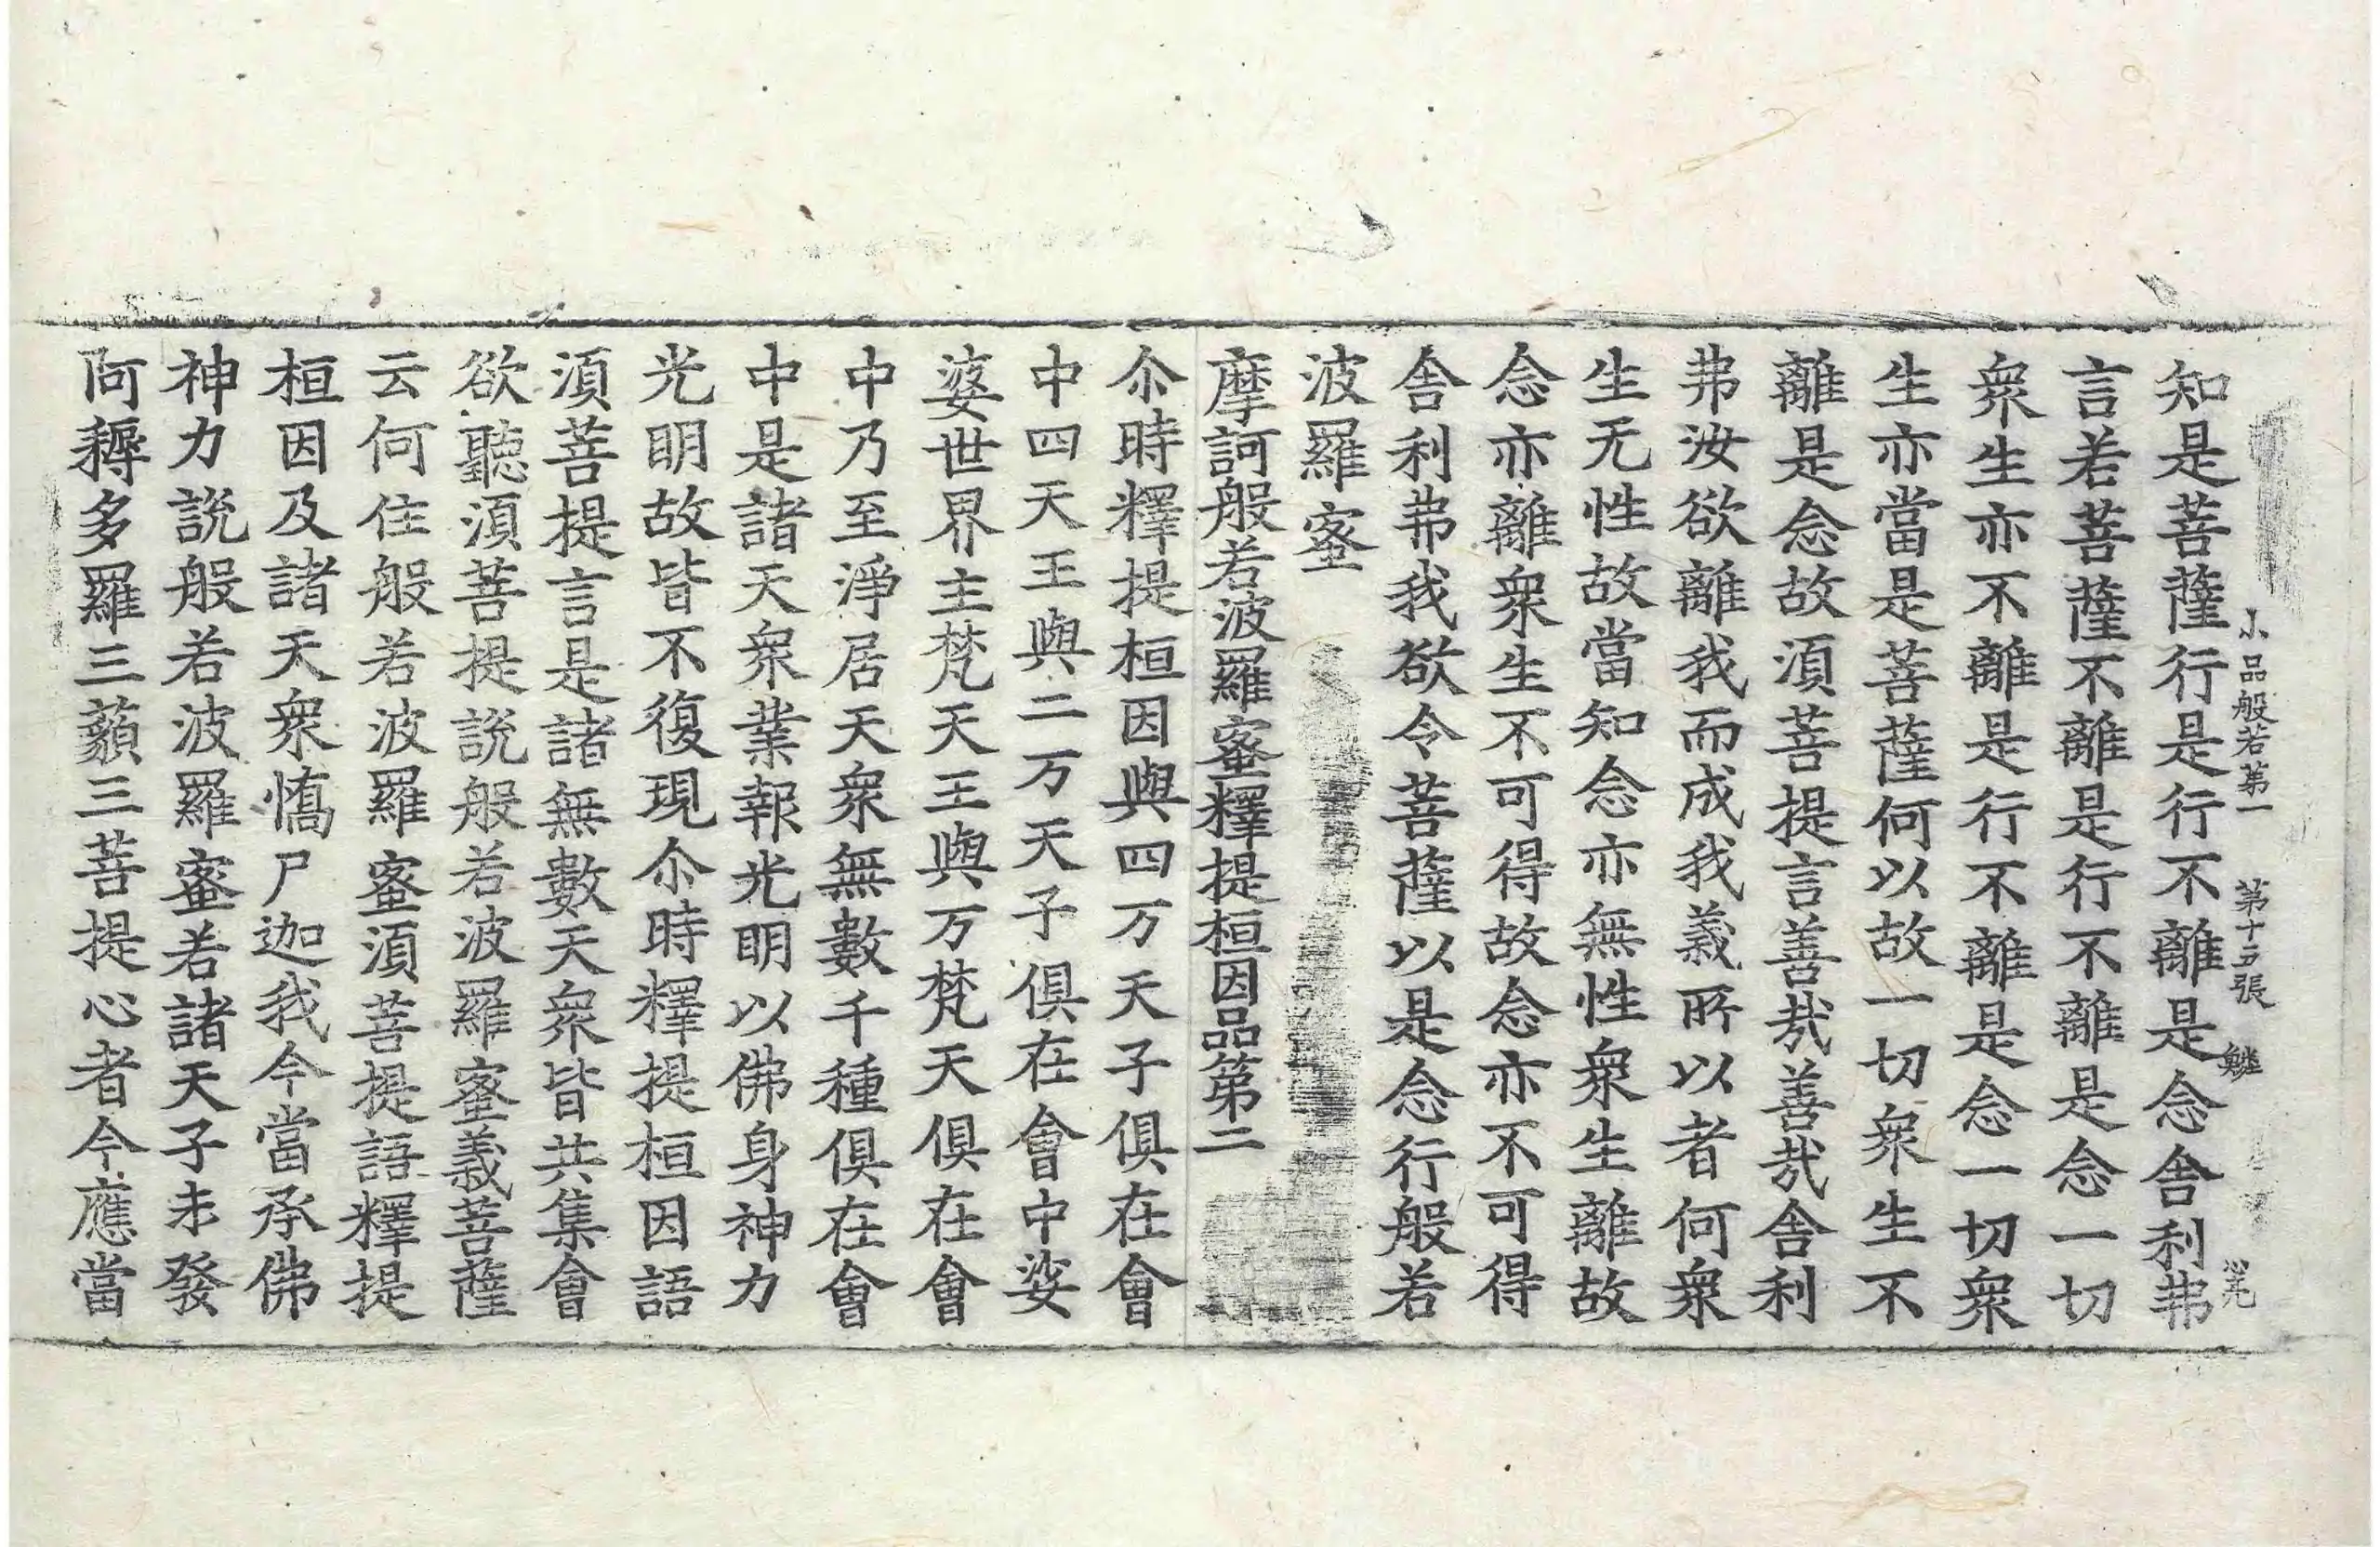 小品般若第一 第十三張 鱗
知是菩薩行是行不離是念舍利弗
言若菩薩不離是行不離是念一切
衆生亦不離是行不離是念一切衆
生亦當是菩薩何以故一切衆生不
離是念故湏菩提言善㢤善㢤舍利
弗汝欲離我而成我義所以者何衆
生无性故當知念亦無性衆生離故
念亦離衆生不可得故念亦不可得
舍利弗我欲令菩薩以是念行般若
波羅蜜
摩訶般若波羅蜜釋提桓因品第二
尒時釋提桓因與四万天子俱在會
中四天王與二万天子俱在會中娑
婆世界主梵天王與万梵天俱在會
中乃至淨居天衆無數千種俱在會
中是諸天衆業報光明以佛身神力
光明故皆不復現尒時釋提桓因語
湏菩提言是諸無數天衆皆共集會
欲聽湏菩提說般若波羅蜜義菩薩
云何住般若波羅蜜湏菩提語釋提
桓因及諸天衆憍尸迦我今當承佛
神力說般若波羅蜜若諸天子未發
阿耨多羅三藐三菩提心者今應當